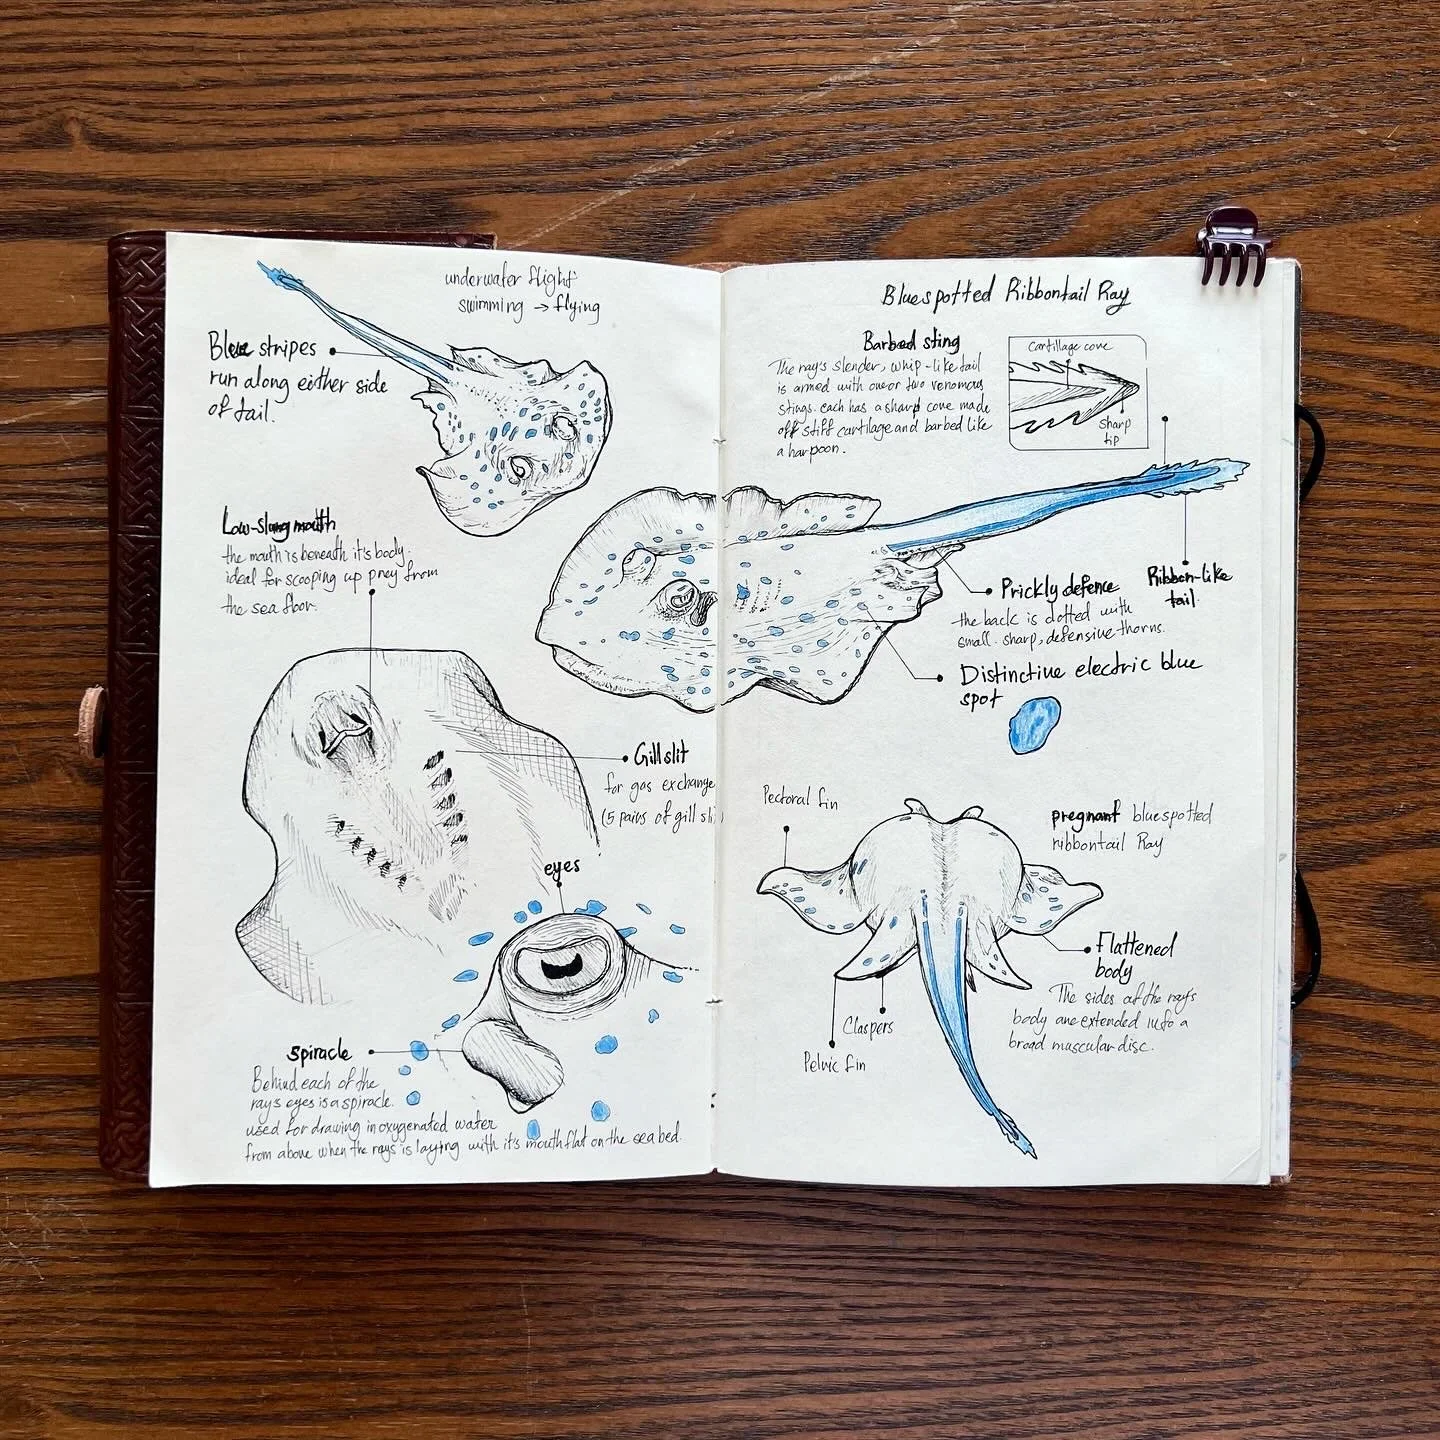 underwater flight
swimming → flying
Blue stripes
run along either side
of tail.
Low-slung mouth
the mouth is beneath it's body.
ideal for scooping up prey from
the sea floor.
Gill slit
for gas exchange
(5 pairs of gill sli
eyes
spiracle
Behind each of the
rays eyes is a spiracle.
used for drawing in oxygenated water
from above when the rays is laying with it's mouth flat on the sea bed.
Bluespotted Ribbontail Ray
Barbed sting
The ray's slender, whip-like tail
is armed with one or two venomous
stings. each has a sharp cone made
off stiff cartilage and barbed like
a harpoon.
Cartillage cone
sharp
tip
Prickly defence
the back is dotted with
small. sharp, defensive thorns.
Ribbon-like
tail.
Distinctive electric blue
spot
Pectoral fin
pregnant bluespotted
ribbontail Ray
Flattened
body
The sides of the ray's
body are extended into a
broad muscular disc.
Claspers
Pelvic fin